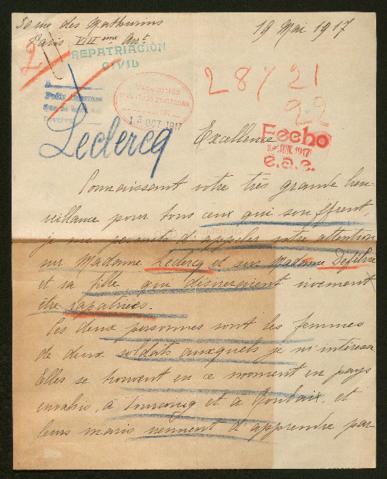 30 rue des Mathurins
19 Mai 1917
Paris VIIIème Arrt
REPATRIACIÓN
CIVIL
2
28721
22
OCT 1917
Leclercq
Excellence
Fecho
1917
e.a.e.
Connaissant votre très grande bien-
veillance pour tous ceux qui souffrent,
je me permets d'appeler votre attention
sur Madame Leclercq et sur Madame
et sa fille qui désireraient vivement
être rapatriées.
Ces deux personnes sont les femmes
de deux soldats auxquels je m'intéresse
Elles se trouvent en ce moment en pays
envahis, à Tourcoing et à Roubaix, et
leurs maris viennent d'apprendre par